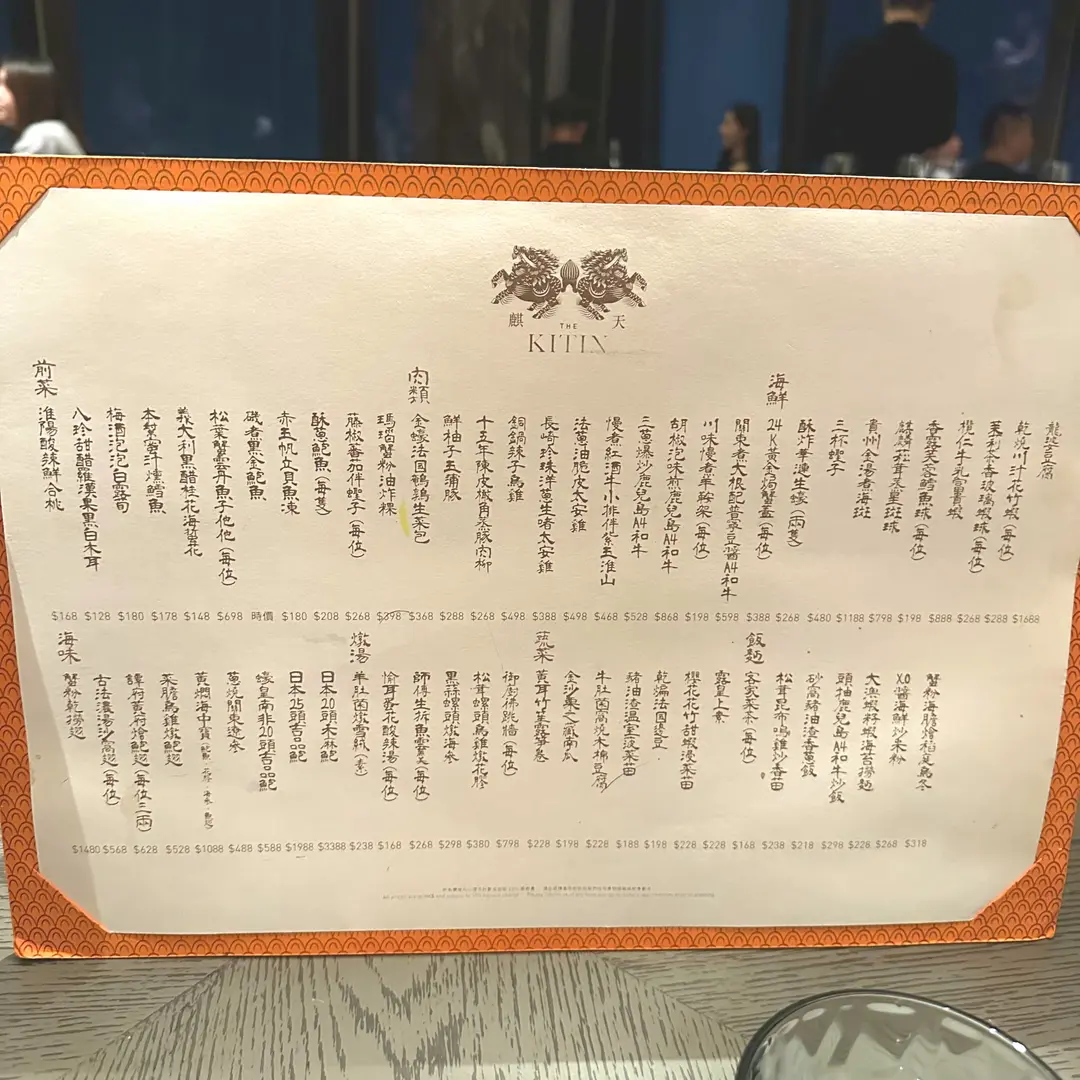 麒天
THE
KITIN
前菜
淮陽酸辣鮮合桃
八珍甜醋羅漢果黑白木耳
梅酒泡泡白露筍
本幫蜜汁燻鱈魚
義大利黑醋桂花海蜇花
松葉蟹膏丹魚子他他(每位)
磯煮黑金鮑魚
赤玉帆立貝魚凍
酥蔥鮑魚(每隻)
藤椒番茄伴蟶子(每位)
瑪瑙蟹粉油炸粿
肉類
金蠔法國鵪鶉生菜包
鮮柚子玉蒲豚
十五年陳皮欖角蒸豚肉柳
銅鍋辣子烏雞
長崎珍珠洋蔥生啫太安雞
法蔥油脆皮太安雞
慢煮紅酒牛小排伴紫玉淮山
三蔥爆炒鹿兒島A4和牛
胡椒泡味煎鹿兒島A4和牛
川味慢煮羊鞍架(每位)
關東煮大根配普寧豆醬A4和牛
海鮮
24K黃金焗蟹蓋(每位)
酥炸華漣生蠔(兩隻)
三杯蟶子
貴州金湯煮海斑
松茸炙星斑球
香露芙蓉鱈魚球(每位)
欖仁牛乳富貴蝦
茉莉茶香玻璃蝦球(每位)
乾燒川汁花竹蝦(每位)
龍皇豆腐
$168 $128 $180 $178 $148 $698 時價 $180 $208 $268 $398 $368 $288 $268 $498 $388 $498 $468 $528 $868 $198 $598 $388 $268 $480 $1188 $798 $198 $888 $268 $288 $1688
海味
蟹粉乾撈翅
古法濃湯沙窩翅(每位)
譚府黃府燴鮑翅(每位三両)
菜膽烏雞燉鮑翅
黃燜海中寶(鮑魚·花膠·海參·魚翅)
蔥燒關東遼參
蠔皇南非20頭吉品鮑
日本25頭吉品鮑
日本20頭禾麻鮑
燉湯
羊肚菌燉雪蓮(素)
榆耳蛋花酸辣湯(每位)
師傅生拆魚雲羹(每位)
黑蒜螺頭燉海參
松茸螺頭烏雞燉花膠
御廚佛跳牆(每位)
蔬菜
黃耳竹笙露筍卷
金沙棗之藏南瓜
牛肚菌窩燒木棉豆腐
豬油渣溫室菠菜苗
乾煸法國邊豆
櫻花花竹甜蝦浸菜苗
露皇上素
飯麵
客家菜茶(每位)
松茸昆布鳴雞炒香苗
砂窩豬油渣香蔥飯
頭抽鹿兒島A4和牛炒飯
大漁蝦籽蝦海苔撈麵
XO醬海鮮炒米粉
蟹粉海膽燴稻庭烏冬
$1480 $568 $628 $528 $1088 $488 $588 $1988 $3388 $238 $168 $268 $298 $380 $798 $228 $198 $228 $188 $198 $228 $228 $168 $238 $218 $298 $228 $268 $318